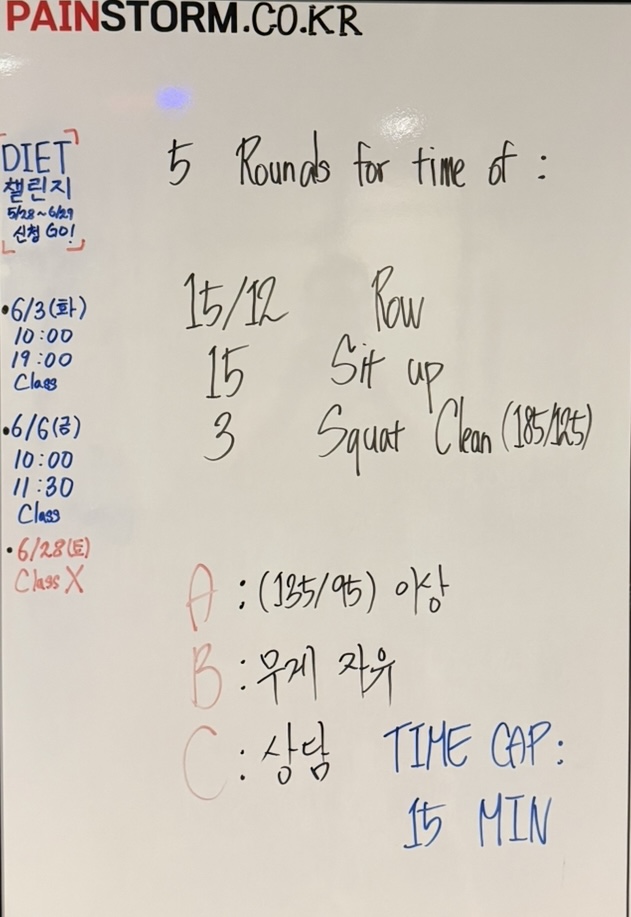 PAINSTORM.CO.KR
DIET
챌린지
5/28~6/29
신청 GO!
•6/3(화)
10:00
19:00
Class
•6/6(금)
10:00
11:30
Class
•6/28(토)
Class X
5 Rounds for time of :
15/12 Row
15 Sit up
3 Squat Clean (185/125)
A : (135/95) 이상
B : 무게 자유
C : 상담
TIME CAP:
15 MIN